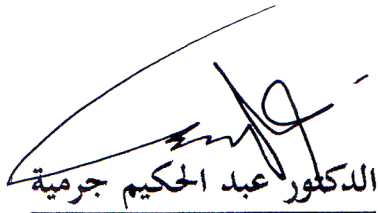 الدكتور عبد الحكيم جرمية